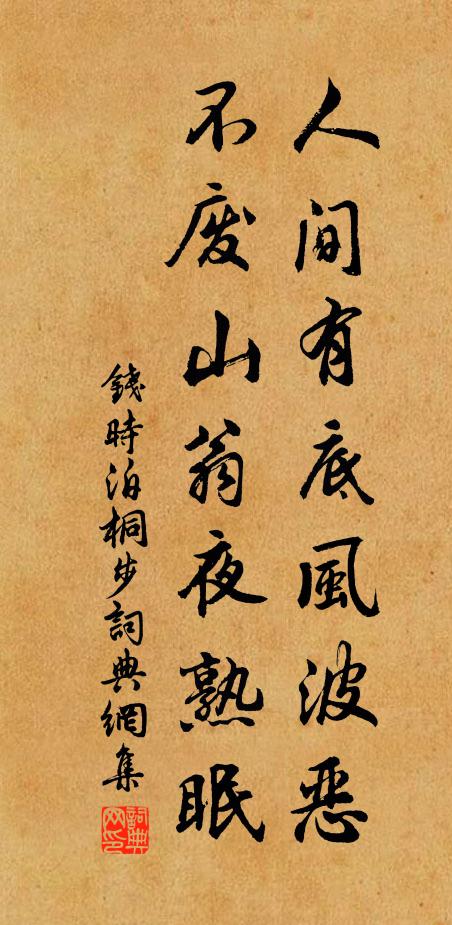 人间有底風波恶
不废山翁夜熟眠
錢時泊桐步詞典網集
詞典网印